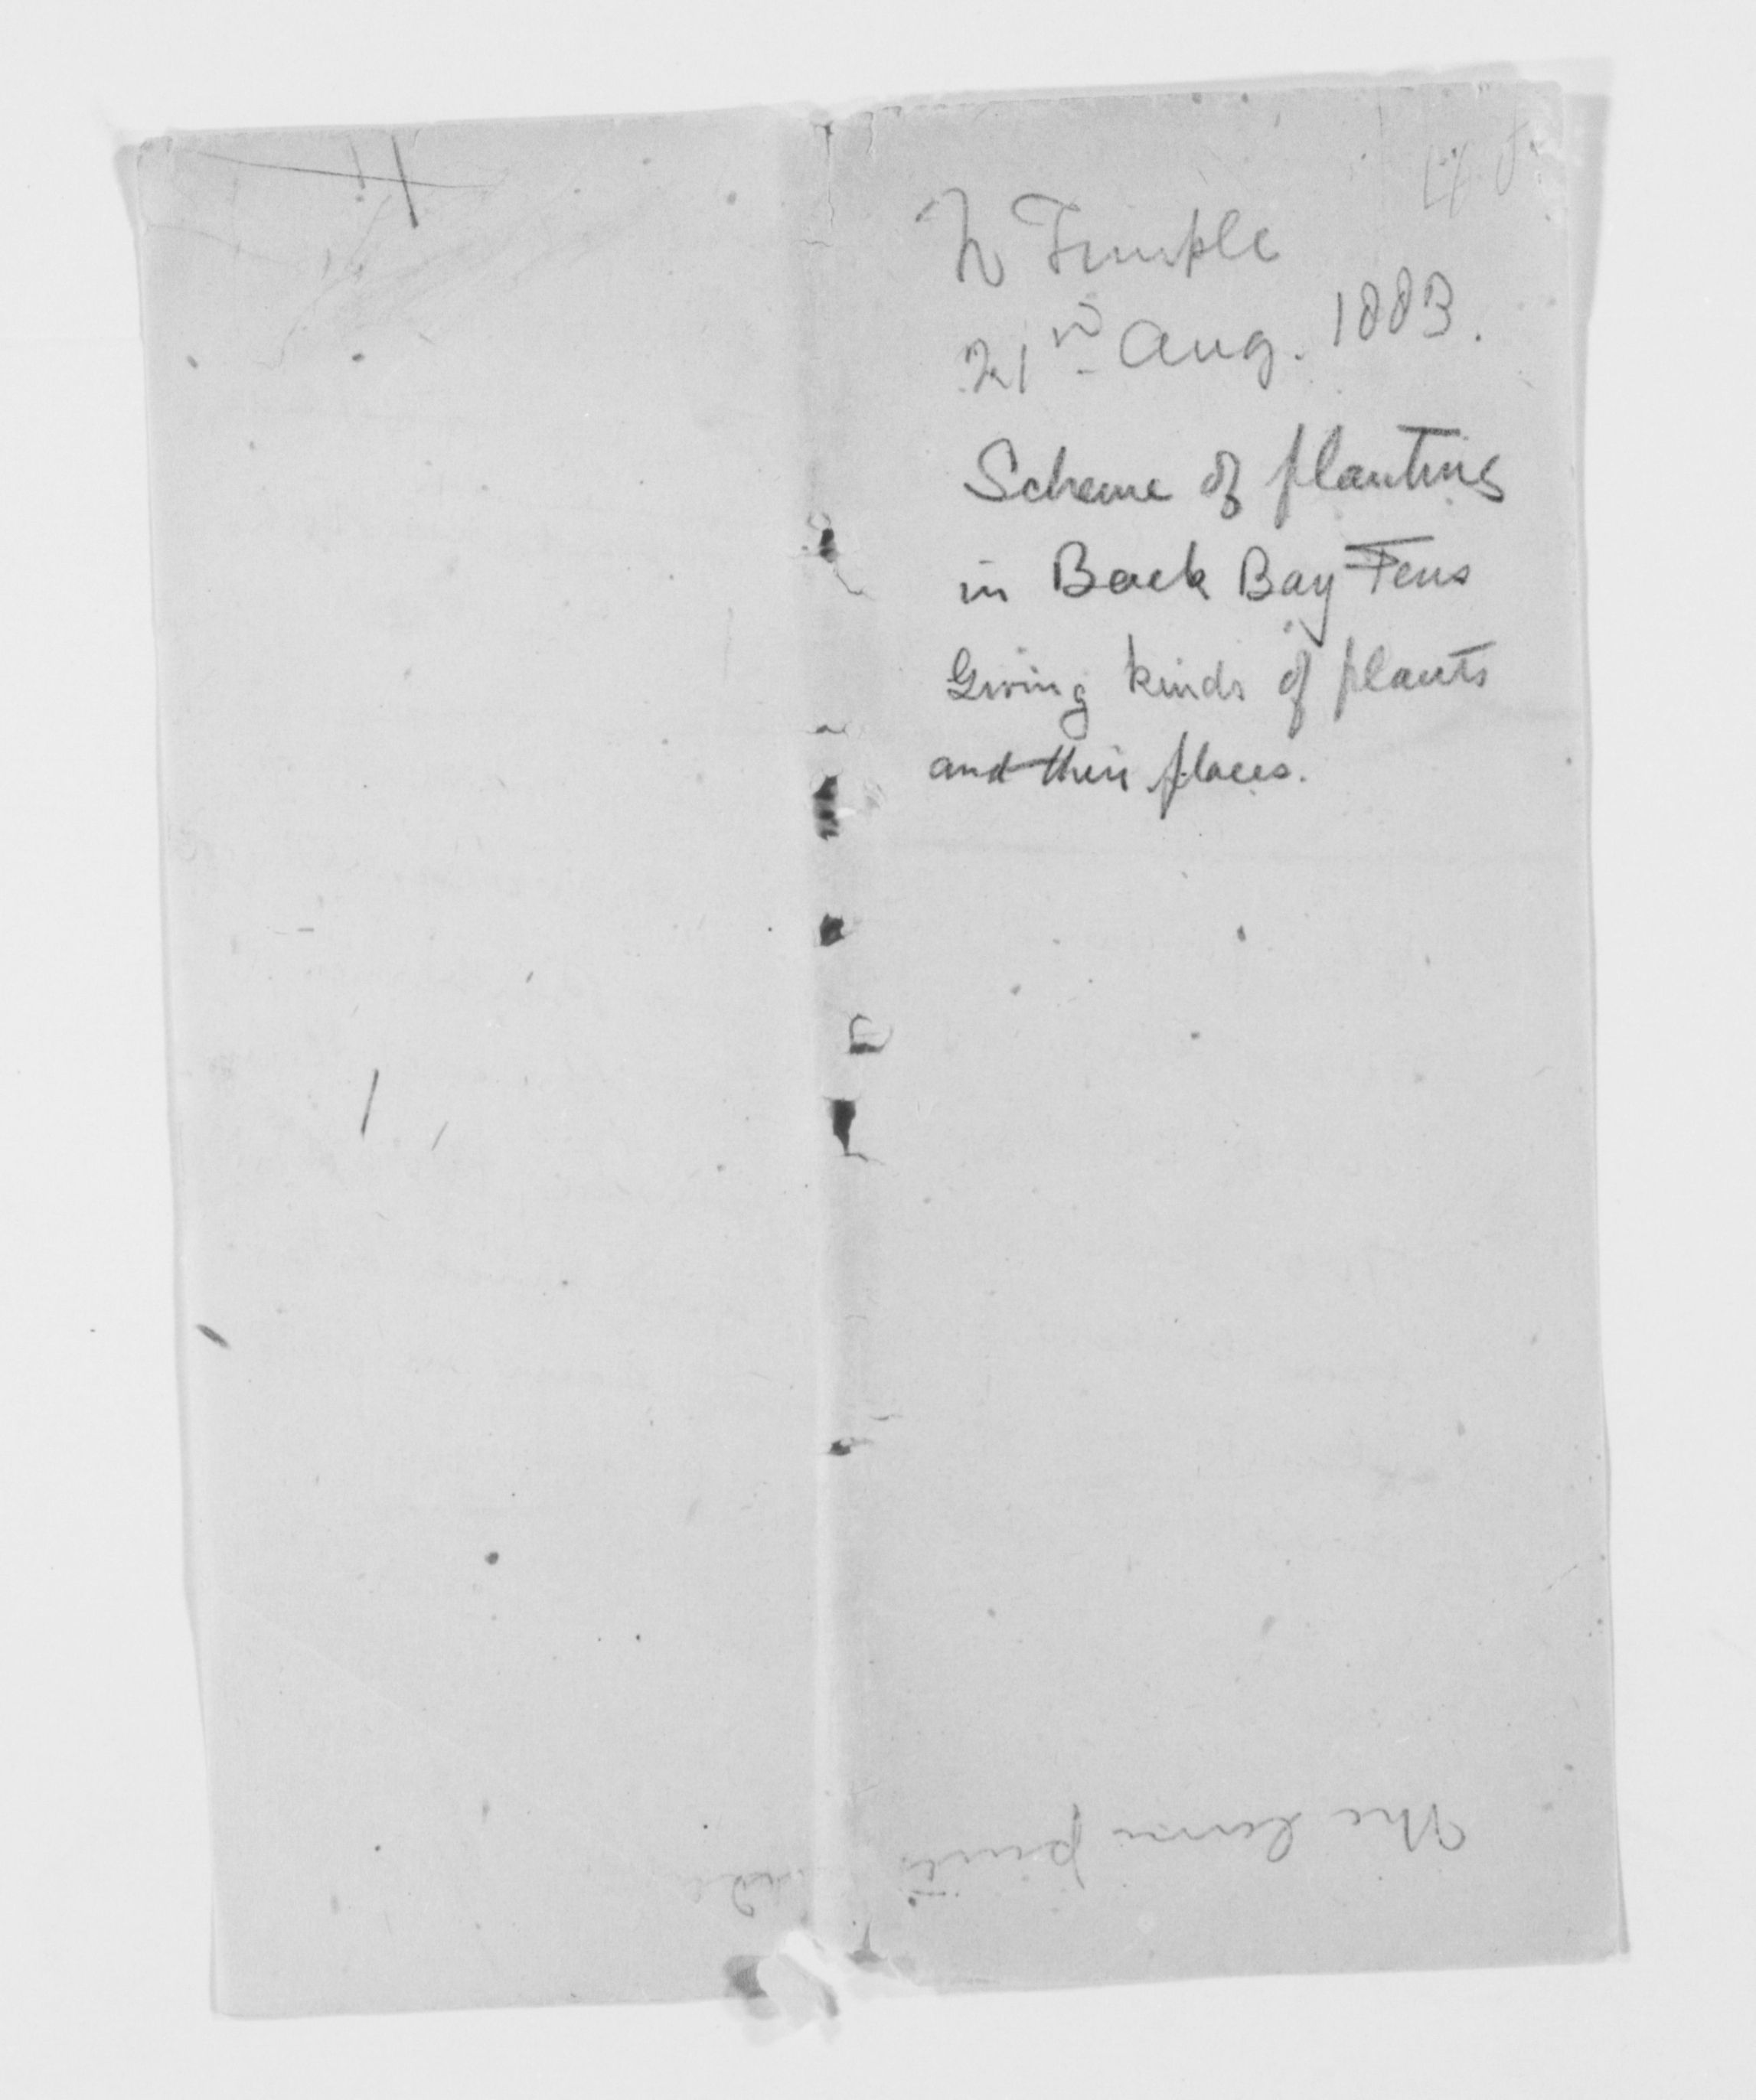 Temple
21st Aug. 1883.
Scheme of planting
in Back Bay Fens
Giving kinds of plants
and their places.
The